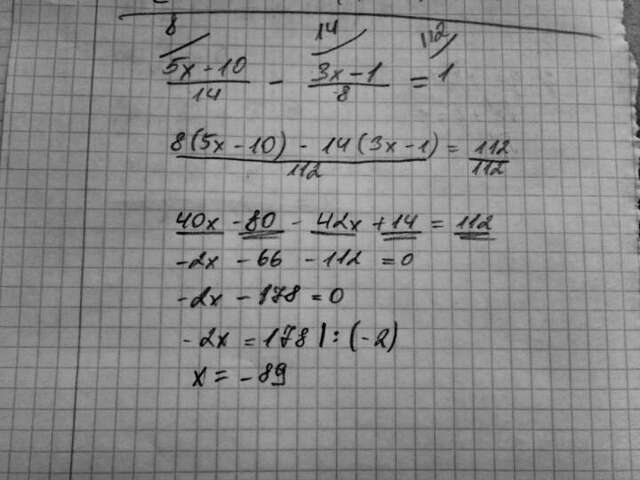 8 14 112
5x-10/14 - 3x-1/8 = 1
8(5x-10) - 14(3x-1)/112 = 112/112
40x - 80 - 42x + 14 = 112
-2x - 66 - 112 = 0
-2x - 178 = 0
-2x = 178 | : (-2)
x = -89